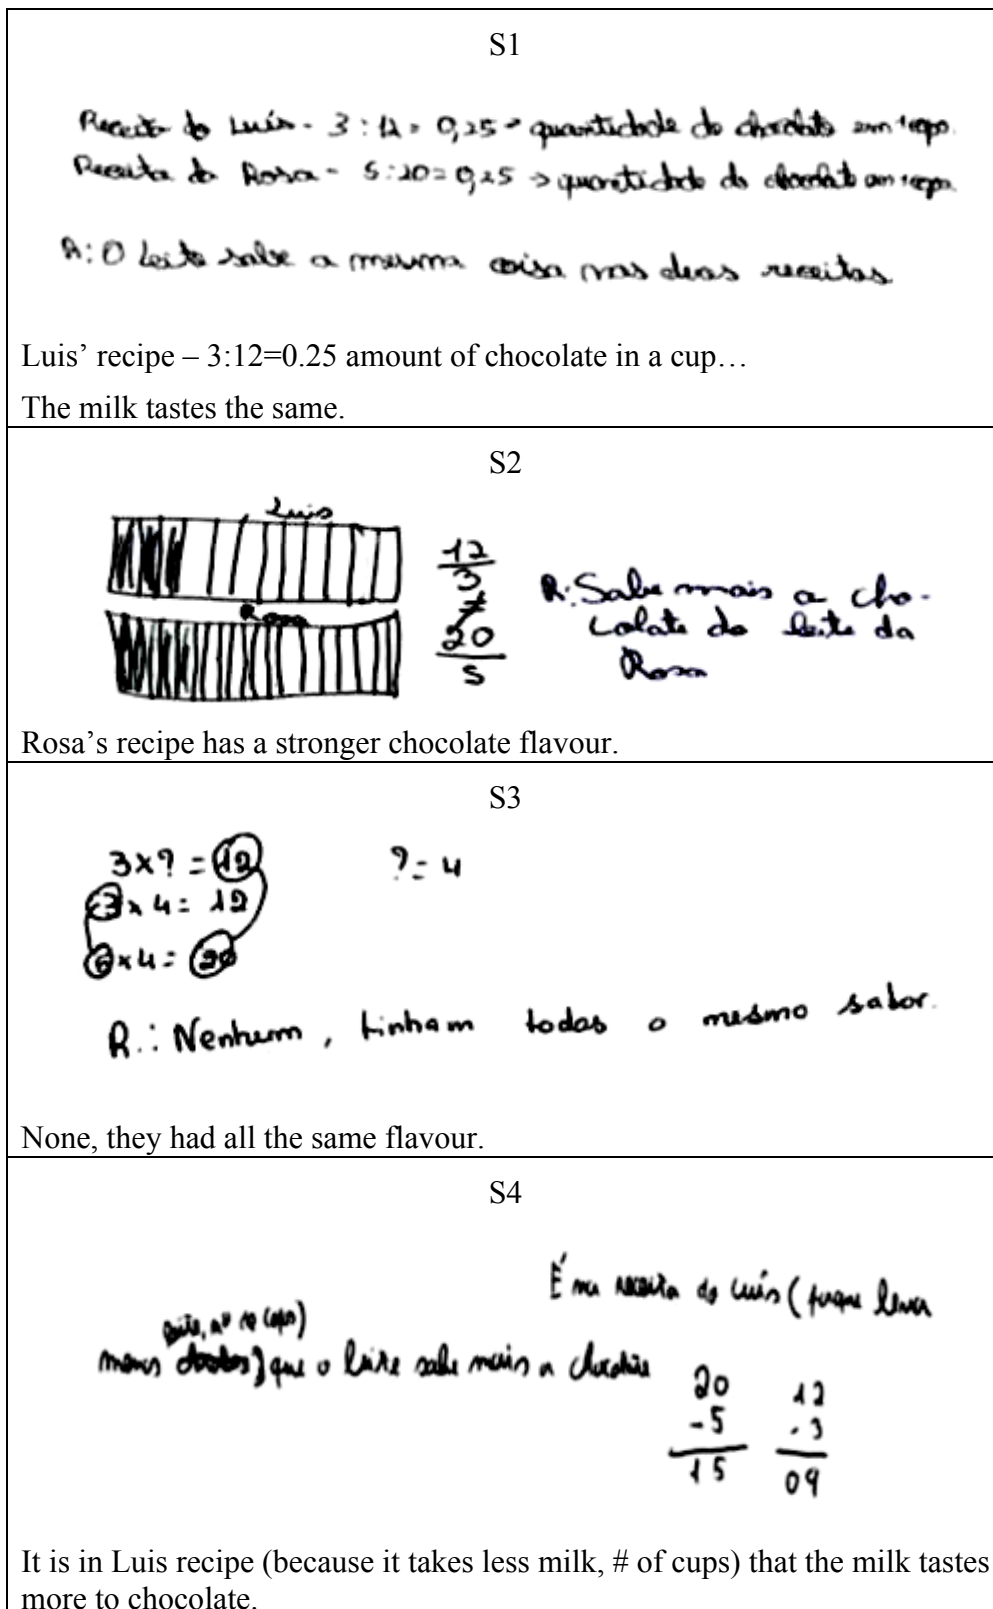 S1
Receita do Luís - 3:12 = 0,25 → quantidade de chocolate em 1 copo.
Receita da Rosa - 5:20=0,25 → quantidade de chocolate em 1 copo
R: O leite sabe a mesma coisa nas duas receitas
Luis’ recipe – 3:12=0.25 amount of chocolate in a cup…
The milk tastes the same.
S2
Luis
Rosa
12
3
≠
20
5
R: Sabe mais a cho-
colate do leite da
Rosa
Rosa’s recipe has a stronger chocolate flavour.
S3
3x? = 12 ?= 4
3x4= 12
5x4= 20
R.: Nenhum, tinham todos o mesmo sabor.
None, they had all the same flavour.
S4
É na receita do Luís (porque leva
leite, nº de copos)
menos que o leite sabe mais a chocolate
20 12
-5 -3
15 09
It is in Luis recipe (because it takes less milk, # of cups) that the milk tastes
more to chocolate.